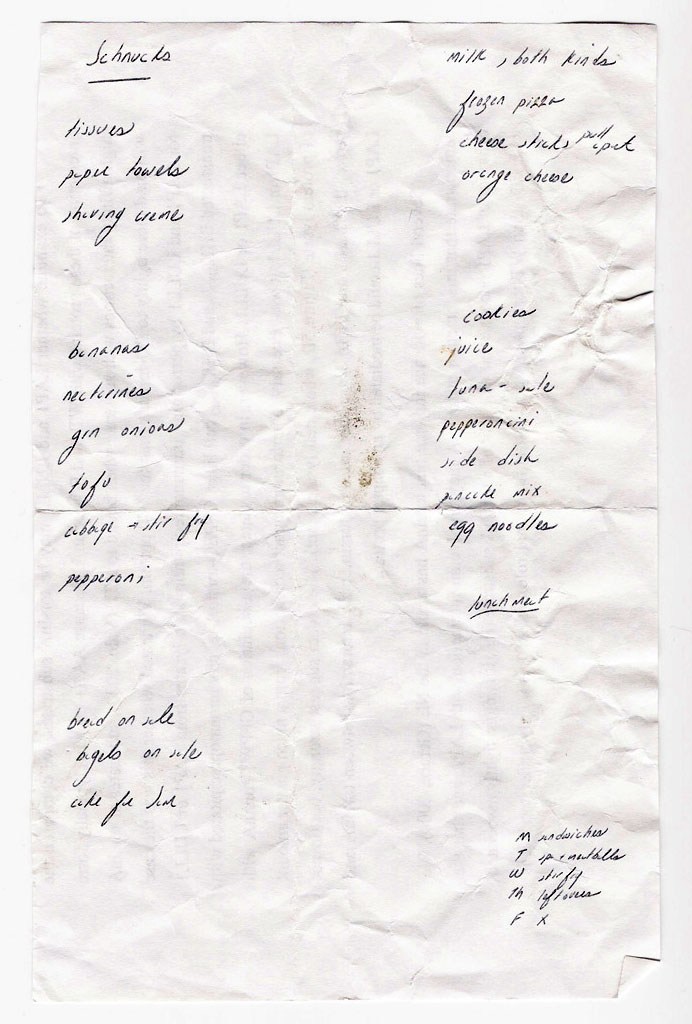 Schnucks
tissues
paper towels
shaving creme
bananas
nectarines
grn onions
tofu
cabbage → stir fry
pepperoni
bread on sale
bagels on sale
cake for
milk, both kinds
frozen pizza
cheese sticks pull apart
orange cheese
cookies
juice
tuna - sale
pepperoncini
side dish
pancake mix
egg noodles
lunch meat
M sandwiches
T sp + meatballs
W stir fry
Th leftovers
F X